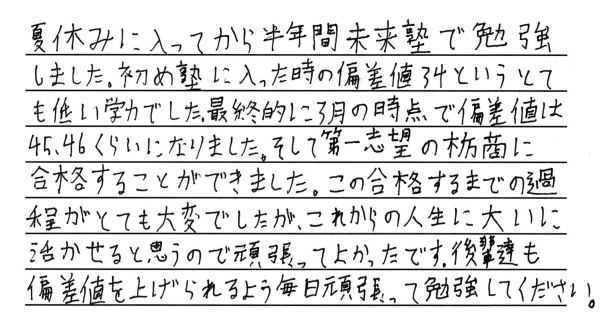 夏休みに入ってから半年間未来塾で勉強
しました。初め塾に入った時の偏差値34というとて
も低い学力でした。最終的に3月の時点で偏差値は
45、46くらいになりました。そして第一志望の栃商に
合格することができました。この合格するまでの過
程がとても大変でしたが、これからの人生に大いに
活かせると思うので頑張ってよかったです。後輩達も
偏差値を上げられるよう毎日頑張って勉強してください。